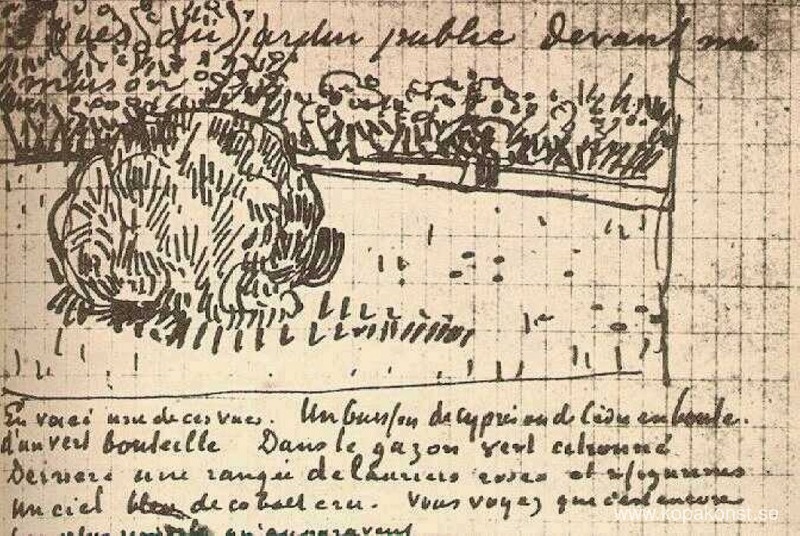 vues du jardin public devant ma
maison
En voici une de ces vues. Un buisson de cyprès ou de cèdre en boule.
d'un vert bouteille Dans le gazon vert citronné
Derrière une rangée de lauriers roses et 2 figures
Un ciel bleu de cobalt cru. Vous voyez que c'est encore
plus
www.kopakonst.se